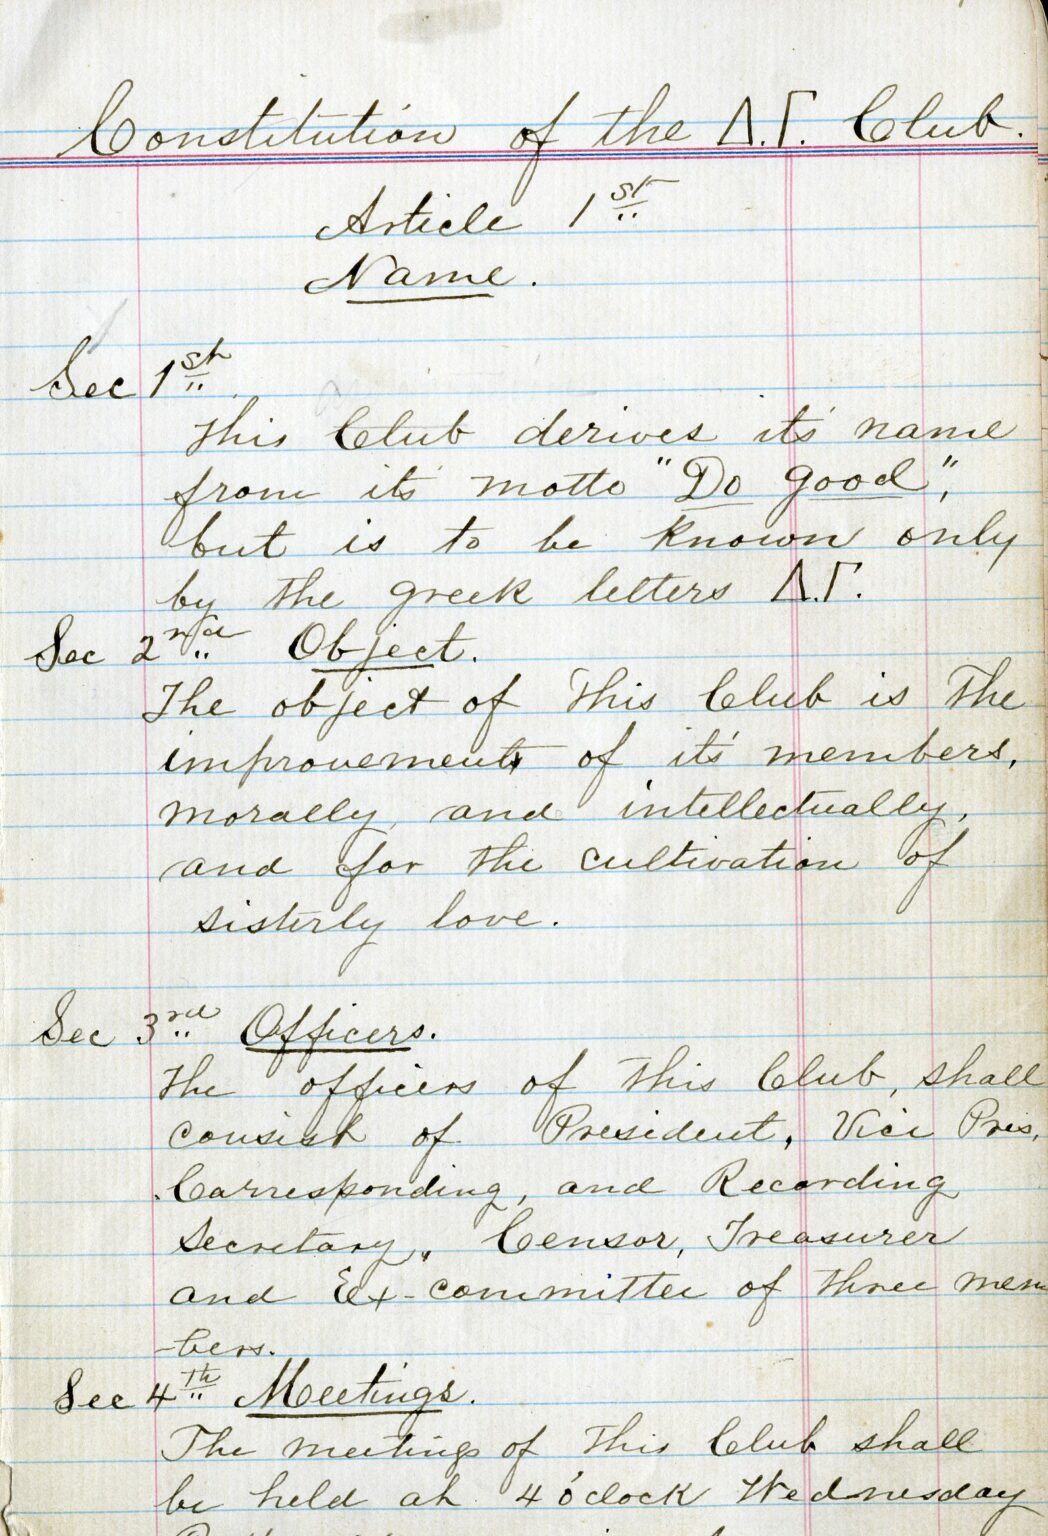 Constitution of the Δ.Γ. Club.
Article 1st
Name.
Sec 1st
This Club derives it's name
from it's motto "Do good",
but is to be known only
by the greek letters Δ.Γ.
Sec 2nd Object.
The object of this Club is the
improvement of it's members,
morally, and intellectually,
and for the cultivation of
sisterly love.
Sec 3rd Officers.
The officers of this Club, shall
consist of President, Vice Pres,
Carresponding, and Recording
Secretary, Censor, Treasurer
and Ex-committee of three mem
-bers.
Sec 4th Meetings.
The meetings of this Club shall
be held at 4 o'clock Wednesday